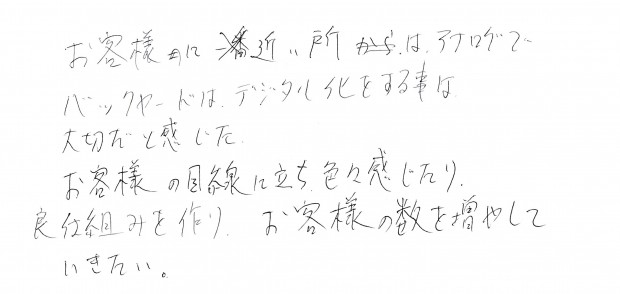 お客様に一番近い所は、アナログで
バックヤードは、デジタル化をする事は
大切だと感じた。
お客様の目線に立ち、色々感じたり、
良仕組みを作り、お客様の数を増やして
いきたい。